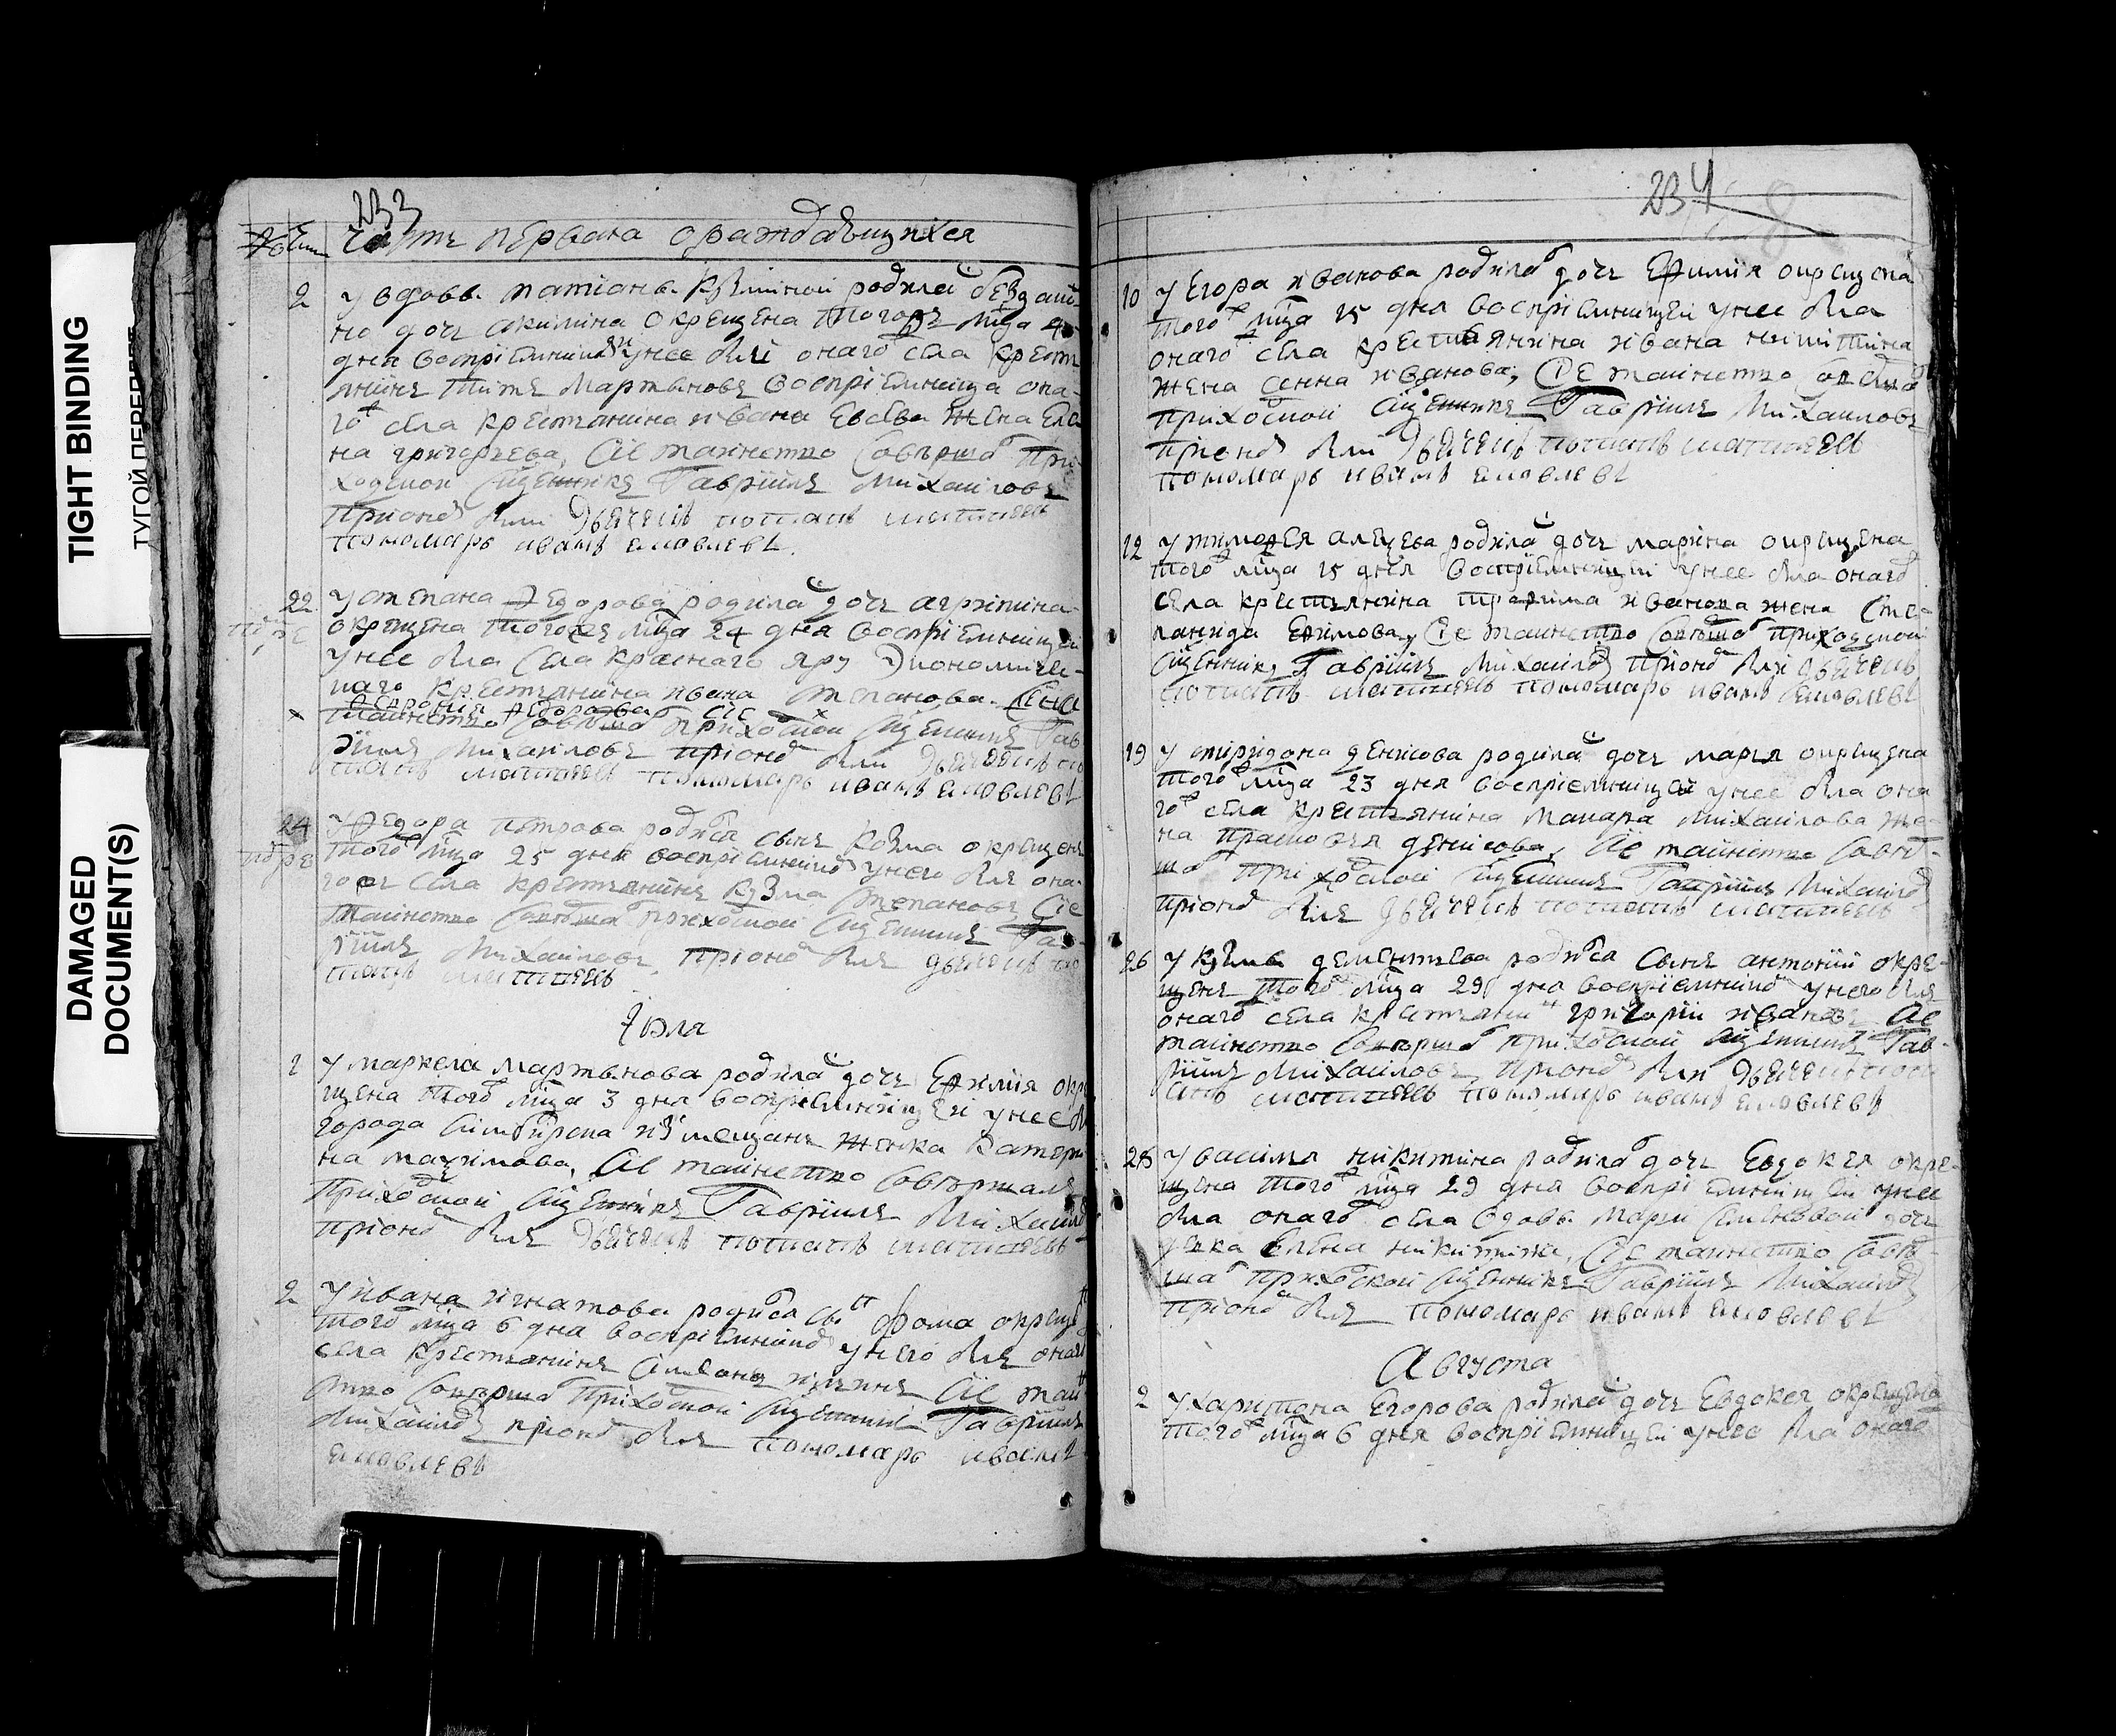 TIGHT BINDING
ТУГОЙ ПЕРЕПЛЕТ
DAMAGED
DOCUMENT(S)
233
часть первая о раждающихся
2 У вдовы татианы кузминой родилас безаш-
но дочь акилина окрещена тогожъ мца 4
дня воспрiемники унее были онаго села крест
янинъ титъ мартыновъ воспрiемница она-
го села крестянина ивана евсева жена еле
на григорьева, Сiе таинство совершал при-
ходской сщенникъ Гаврiилъ Михаиловъ
приономъ были дьячекъ потапъ матвеевъ
пономарь иванъ яковлевъ.
22 У степана Федорова родилас дочь агрипина
окрещена тогожъ мца 24 дня воспрiемницей
унее была села краснаго яру Экономиче-
скаго крестьянина ивана степанова жена
Феврония Федорова сiе
таинство совершал приходской сщенникъ Гав-
рiилъ Михаиловъ приономъ были дьячекъ по
тапъ матвеевъ пономарь иванъ яковлевъ
24 У Федора петрова родился сынъ козма окрещенъ
тогожъ мца 25 дня воспрiемникомъ унего былъ она-
гожъ села крестьянинъ кузма степановъ, Сiе
таинство совершал приходской сщенникъ Гав-
рiилъ Михаиловъ, приономъ былъ дьячекъ по
тапъ матвеевъ
Iюля
1 У маркела мартынова родилас дочь Ефимiя окре
щена тогожъ мца 3 дня воспрiемницей унее б
города симбирска изъ мещанъ женка катери
на максимова, Сiе таинство совершалъ
приходской сщенникъ Гаврiилъ Михаило
приономъ былъ дьячекъ потапъ матвеевъ
2 У ивана игнатова родился сынъ Фома окрещен
тогожъ мца 6 дня воспрiемникомъ унего былъ онаго
села крестьянинъ симеонъ ильинъ Сiе таин
ство совершал приходской сщенникъ Гаврiилъ
Михаиловъ приономъ былъ пономарь иванъ
яковлевъ
234
8
10 У Егора иванова родилас дочь Ефимiя окрещена
тогожъ мца 15 дня воспрiемницей унее была
онаго села крестьянина ивана никитина
жена анна иванова, Сiе таинство совершал
приходской сщенникъ Гаврiилъ Михаиловъ
приономъ были дьячекъ потапъ матвеевъ
пономарь иванъ яковлевъ
12 У тимофея алещева родилас дочь марина окрещена
тогожъ мца 15 дня воспрiемницей унее была онаго
села крестьянина трофима иванова жена сте-
панида Ефимова, Сiе таинство совершал приходской
сщенникъ Гаврiилъ Михаиловъ приономъ были дьячекъ
потапъ матвеевъ пономарь иванъ яковлевъ
19 У спиридона денисова родилас дочь марья окрещена
тогожъ мца 23 дня воспрiемницей унее была она
гожъ села крестьянина макара михаилова же-
на прасковья денисова, Сiе таинство совер-
шал приходской сщенникъ Гаврiилъ Михаиловъ
приономъ былъ дьячекъ потапъ матвеевъ
26 У кузмы дементьева родился сынъ антонiй окре-
щенъ тогожъ мца 29 дня воспрiемникомъ унего былъ
онаго села крестьянинъ григорiй ивановъ Сiе
таинство совершал приходской сщенникъ Гав-
рiилъ Михаиловъ, приономъ были дьячекъ пот
апъ матвеевъ пономарь иванъ яковлевъ
28 У василья никитина родилас дочь Евдокея окре-
щена тогожъ мца 29 дня воспрiемницей унее
была онаго села вдовы марьи семеновой доч
девка Елена никитина, Сiе таинство совер-
шал приходской сщенникъ Гаврiилъ Михаиловъ
приономъ былъ пономарь иванъ яковлевъ
Августа
2 У харитона Егорова родилас дочь Евдокея окрещена
тогожъ мца 6 дня воспрiемницей унее была онаго